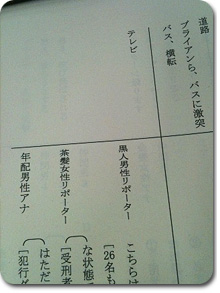 道路
ブライアンら、バスに激突
バス、横転
テレビ
黒人男性リポーター
こちらは
［26名も
な状態で
茶髪女性リポーター
［受刑者
はただ
年配男性アナ
［犯行グ